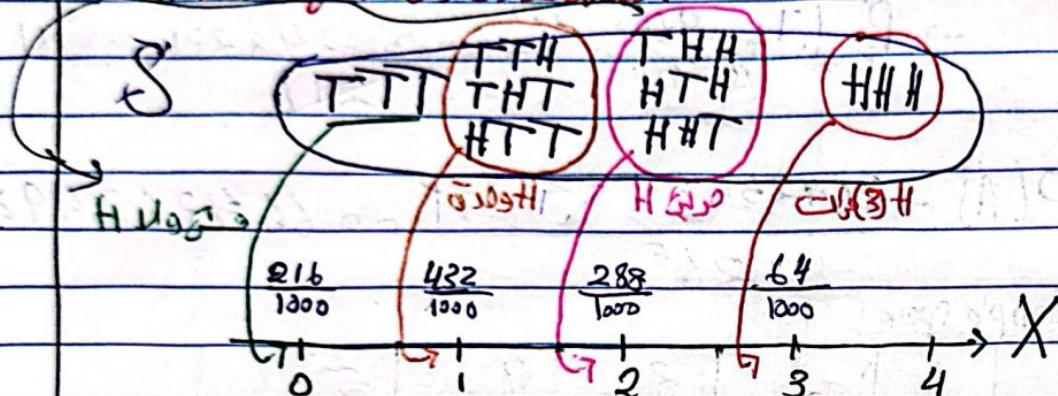 S
TTT
TTH
THT
HTT
THH
HTH
HHT
HHH
H واحدة
H مرتين
H (3) مرات
H
216/1000
432/1000
288/1000
64/1000
0 1 2 3 4 X